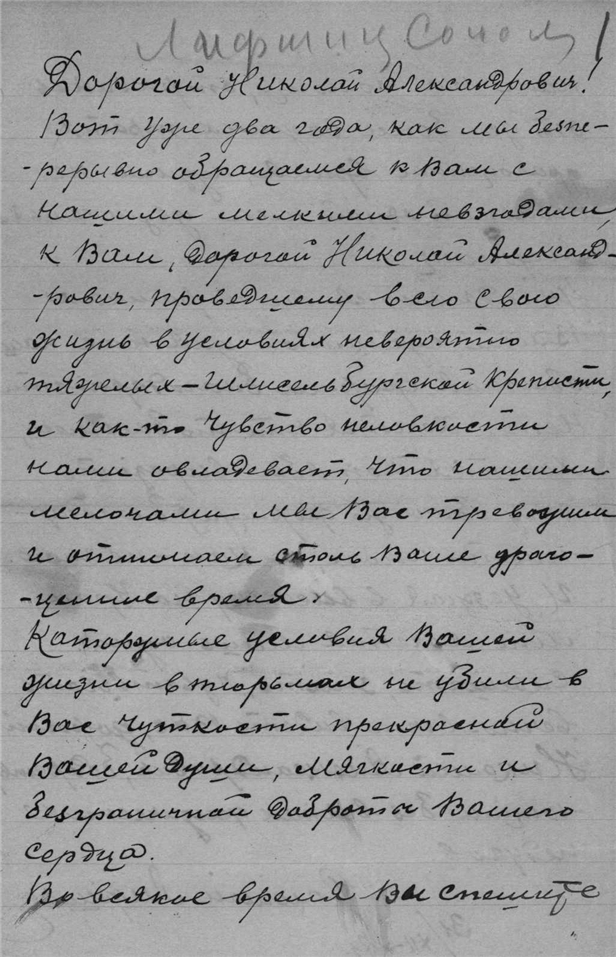 Лифшиц Соном 1
Дорогой Николай Александрович!
Вот уже два года, как мы безпе-
-рерывно обращаемся к Вам с
нашими мелкими невзгодами,
к Вам, Дорогой Николай Александ-
-рович, проведшему всю свою
жизнь в условиях невероятно
тяжелых – Шлиссельбургской Крепости,
и как-то чувство неловкости
нами овладевает, что нашими
мелочами мы Вас тревожим
и отнимаем столь Ваше драго-
-ценное время.
Каторжные условия Вашей
жизни в тюрьмах не убили в
Вас чуткости прекрасной
Вашей Души, мягкости и
безграничной Доброты Вашего
сердца.
Во всякое время Вы спешите